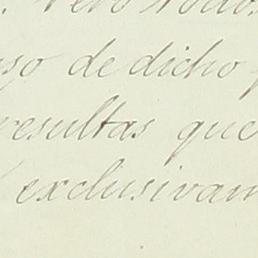 Pero todo
uso de dicho
resultas que
exclusivam